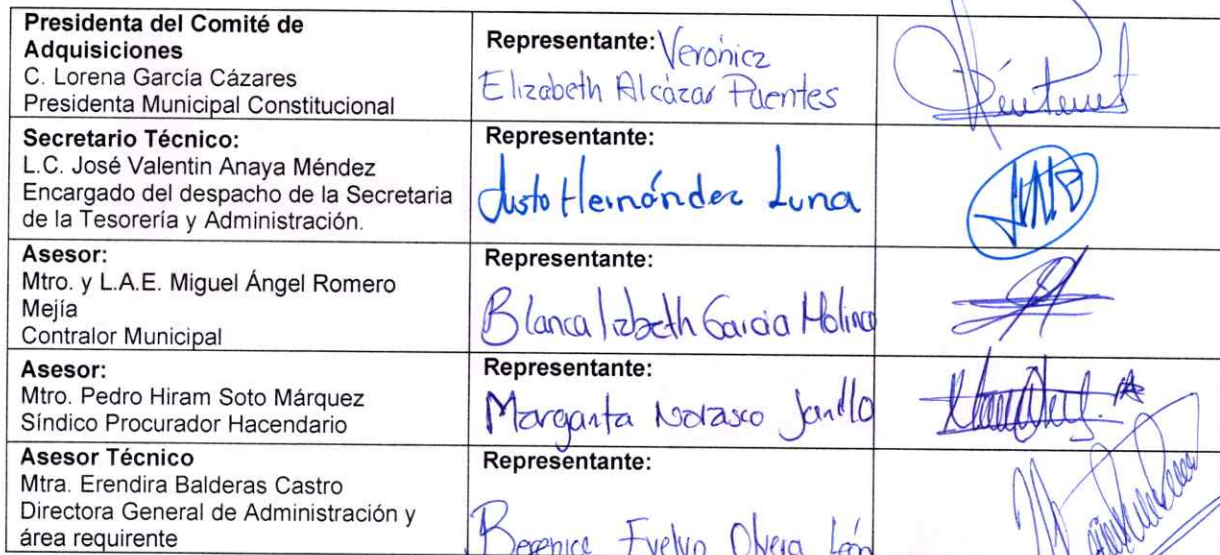 Presidenta del Comité de
Adquisiciones
C. Lorena García Cázares
Presidenta Municipal Constitucional
Representante: Verónica
Elizabeth Alcázar Puentes
Secretario Técnico:
L.C. José Valentin Anaya Méndez
Encargado del despacho de la Secretaria
de la Tesorería y Administración.
Representante:
Justo Hernández Luna
Asesor:
Mtro. y L.A.E. Miguel Ángel Romero
Mejía
Contralor Municipal
Representante:
Blanca Izbeth García Molina
Asesor:
Mtro. Pedro Hiram Soto Márquez
Síndico Procurador Hacendario
Representante:
Margarita Norasco Jarillo
Asesor Técnico
Mtra. Erendira Balderas Castro
Directora General de Administración y
área requirente
Representante:
Berenice Evelyn Olvera León